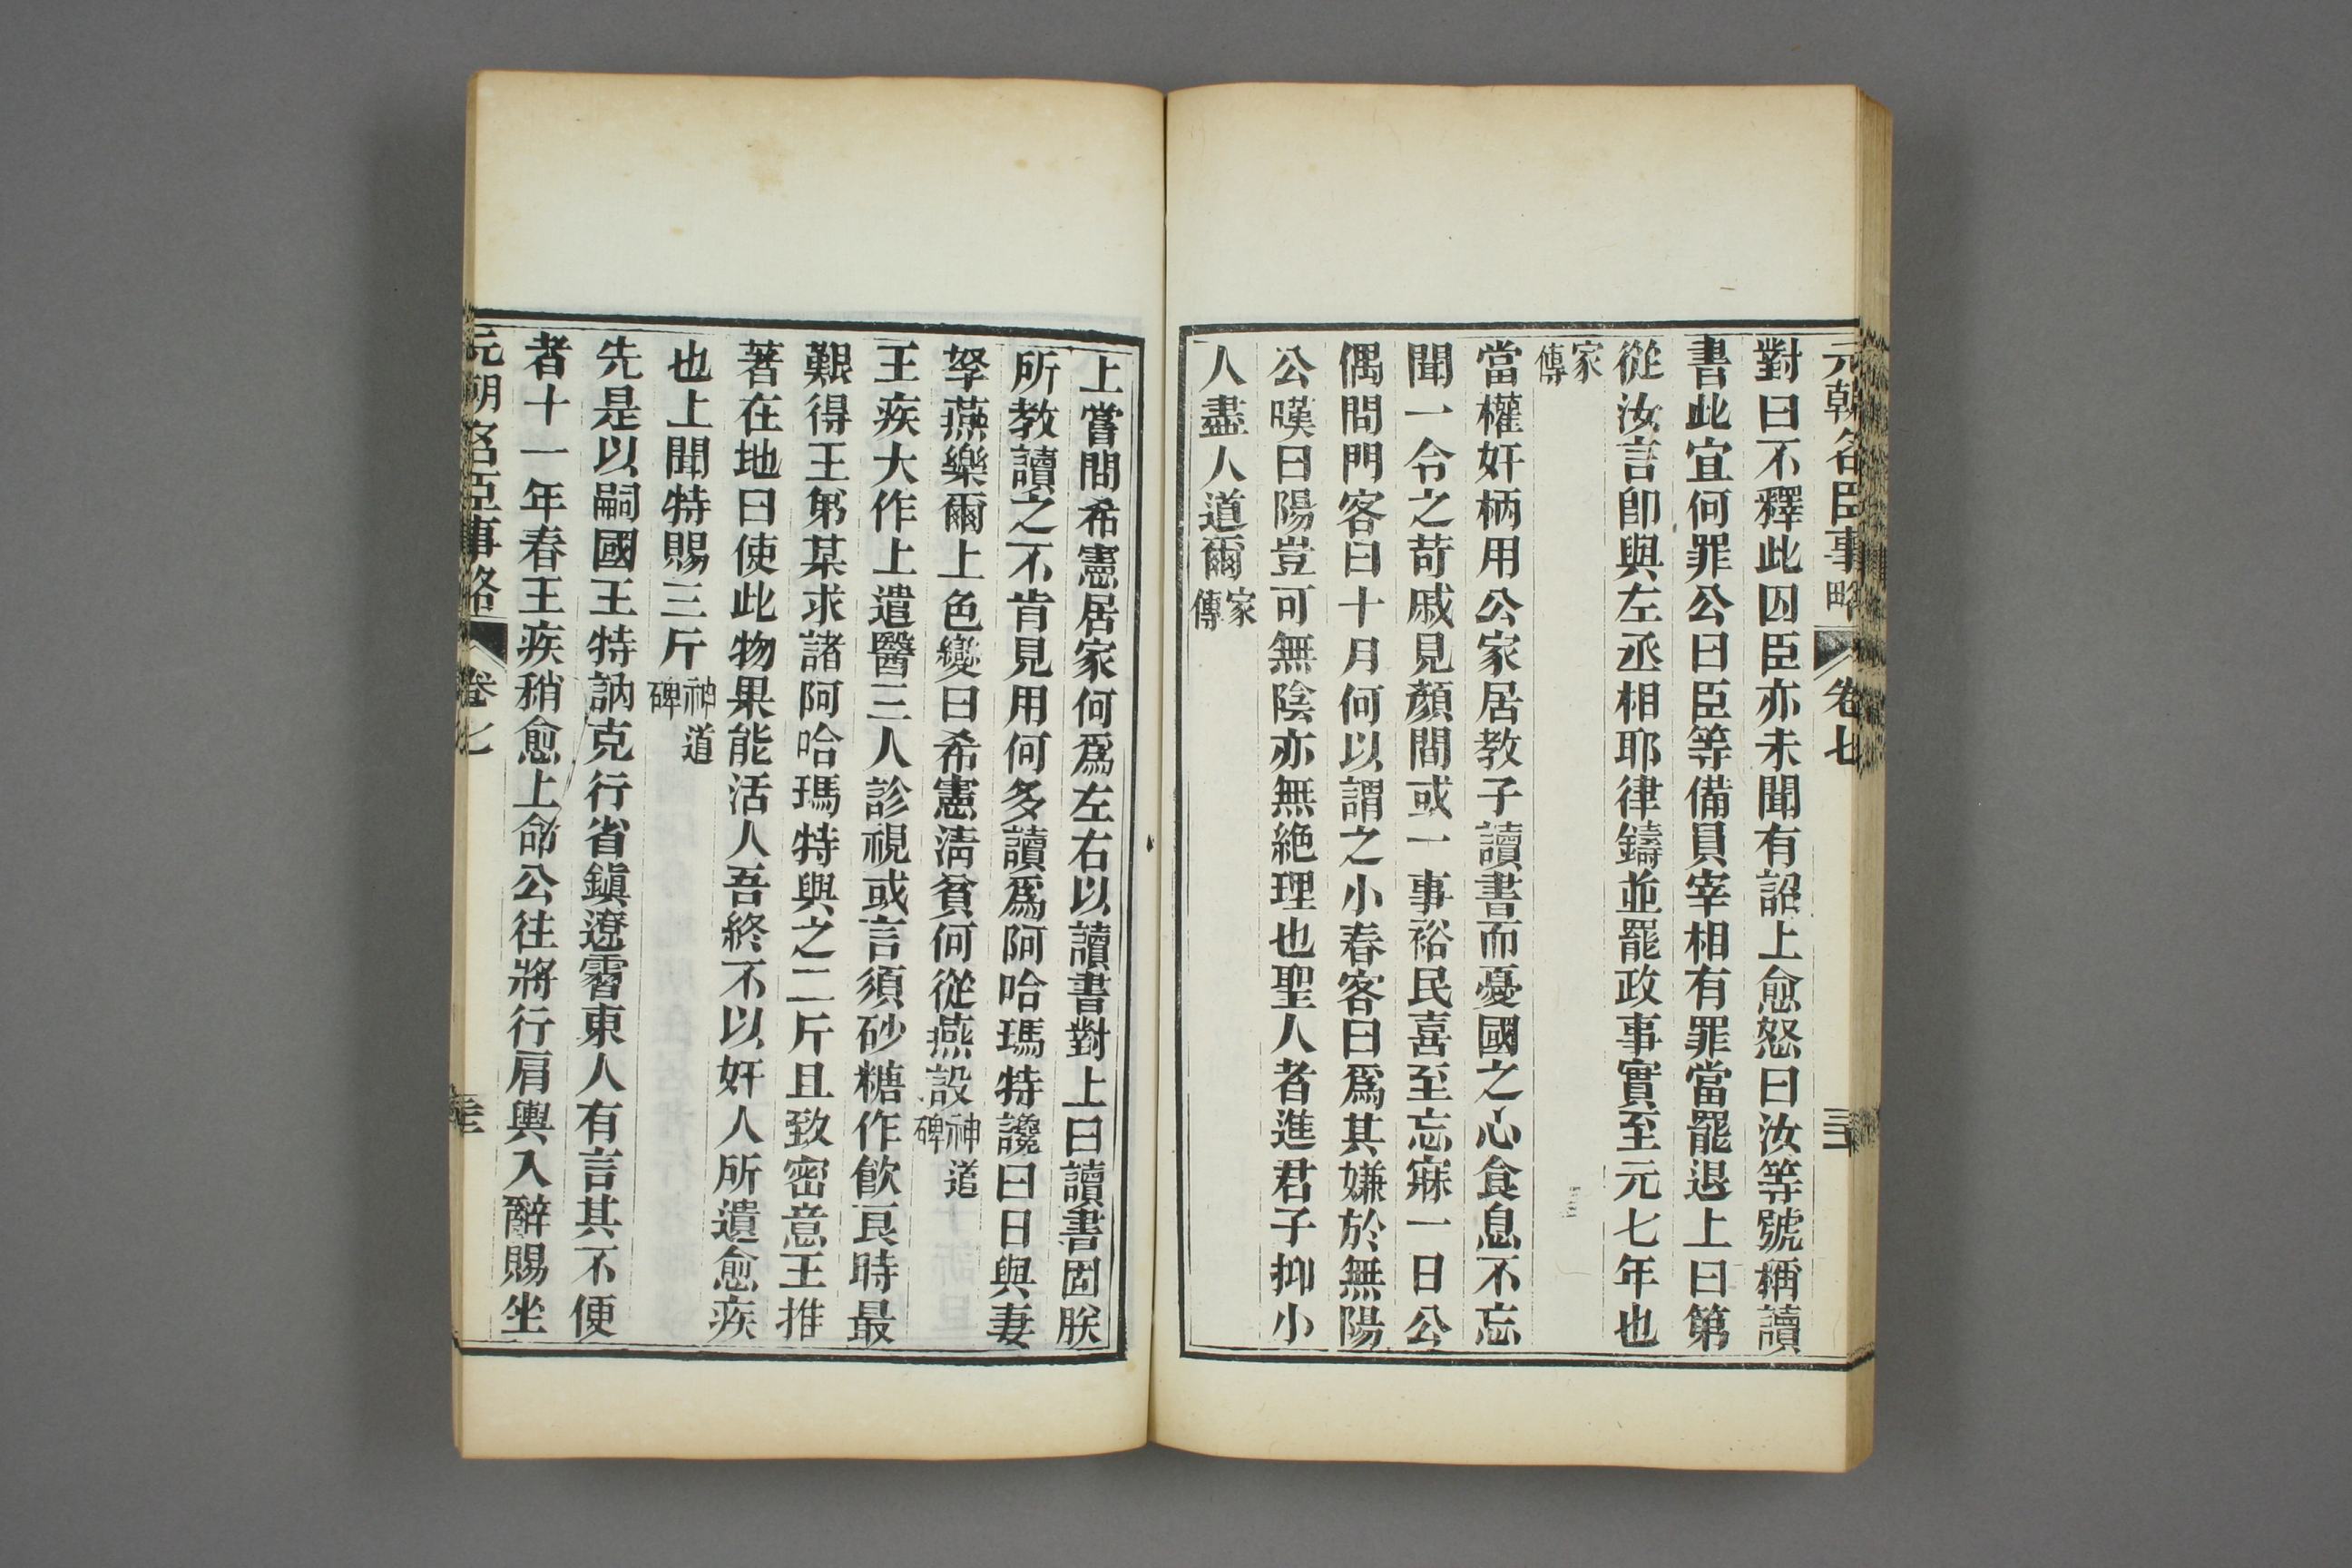 元朝名臣事略 卷七 三十
對曰不釋此囚臣亦未聞有詔上愈怒曰汝等號稱讀
書此宜何罪公曰臣等備員宰相有罪當罷退上曰第
從汝言卽與左丞相耶律鑄並罷政事實至元七年也
家傳
當權奸柄用公家居教子讀書而憂國之心食息不忘
聞一令之苛戚見顏間或一事裕民喜至忘寐一日公
偶問門客曰十月何以謂之小春客曰爲其嫌於無陽
公嘆曰陽豈可無陰亦無絶理也聖人者進君子抑小
人盡人道爾家傳
上嘗問希憲居家何爲左右以讀書對上曰讀書固朕
所教讀之不肯見用何多讀爲阿哈瑪特讒曰日與妻
孥燕樂爾上色變曰希憲淸貧何從燕設神道碑
王疾大作上遣醫三人診視或言須砂糖作飮良時最
艱得王弟某求諸阿哈瑪特與之二斤且致密意王推
著在地曰使此物果能活人吾終不以奸人所遺愈疾
也上聞特賜三斤神道碑
先是以嗣國王特訥克行省鎭遼霫東人有言其不便
者十一年春王疾稍愈上命公往將行肩輿入辭賜坐
元朝名臣事略 卷七